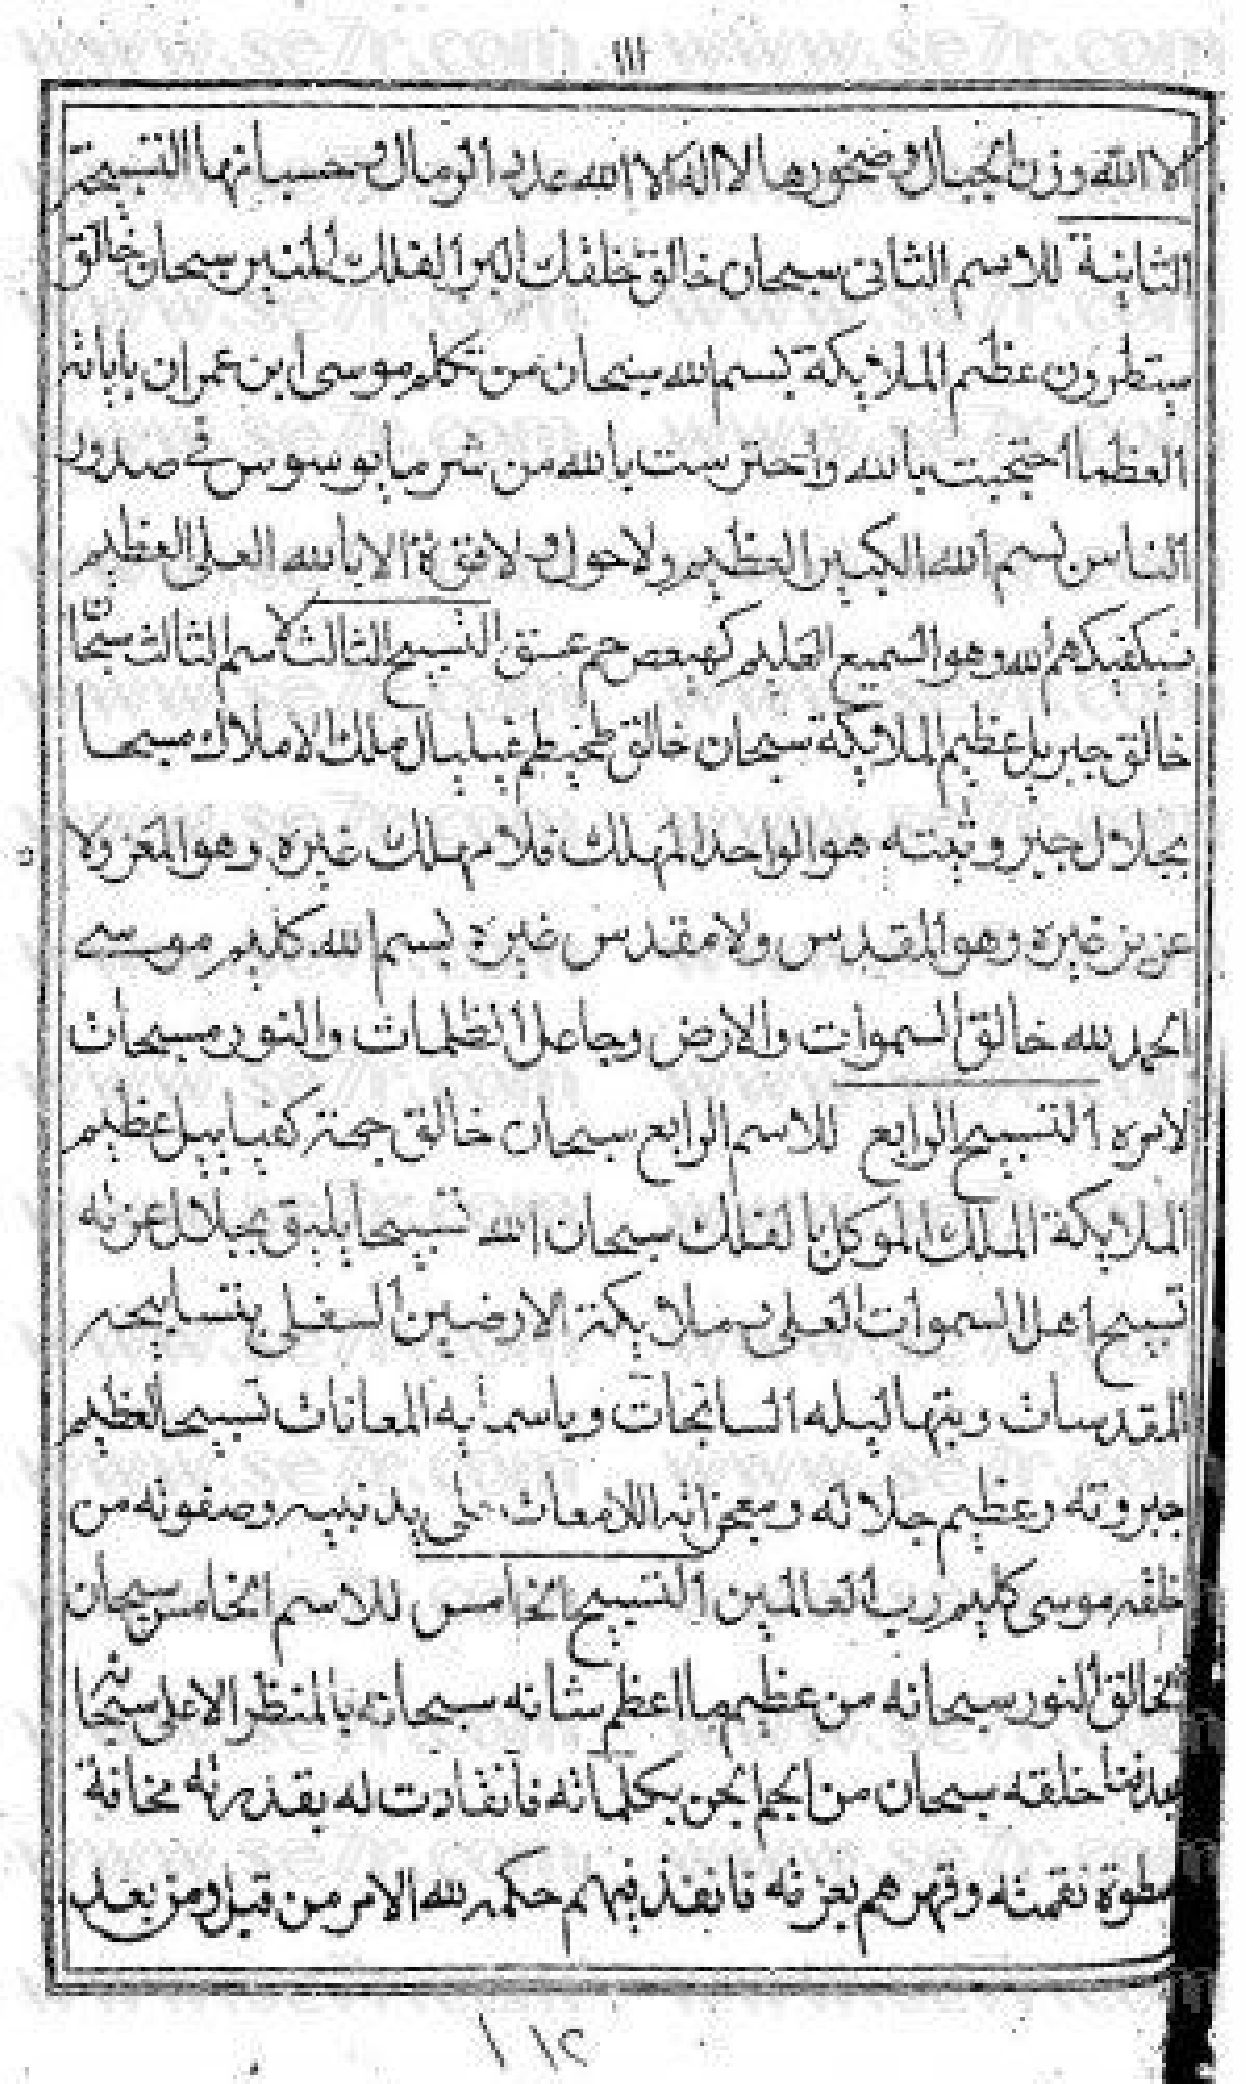 www.se7r.com www.se7r.com
١١١
الا الله وزن الجبال وصخورها لا اله الا الله عدد الرمال وحسبانها التسبيحة
الثانية للاسم الثاني سبحان خالق خلقك الير الفلك المنير سبحان خالق
سيططرون عظيم الملايكة بسم الله سبحان من تكلم موسى ابن عمران باياته
العظما احتجبت بالله واحترست بالله من شر ما يوسوس في صدور
الناس بسم الله الكبير العظيم ولا حول ولا قوة الا بالله العلى العظيم
فسيكفيكهم الله وهو السميع العليم كهيعص حم عسق التسبيح الثالث لاسم الثالث سبحان
خالق جبريل عظيم الملايكة سبحان خالق ملك الاملاك سبحا
بجلال جبروتيته هو الواحد المهلك فلا مهلك غيره وهو المعز ولا
عزيز غيره وهو المقدس ولا مقدس غيره بسم الله كليم موسى
الحمد لله خالق السموات والارض وجاعل الظلمات والنور مسبحات
لامره التسبيح الرابع للاسم الرابع سبحان خالق كفيابيل عظيم
الملايكة الملك الموكل بالفلك سبحان الله تسبيحا يليق بجلال عزته
تسبيح اهل السموات العلى وملايكة الارضين السفلى بتسابيحه
المقدسات السابحات وباسمايه المعانات تسبيحا لعظيم
جبروته وعظيم جلاله ومعجزاته اللامعات على يد نبيه وصفوته من
خلقه موسى كليم رب العالمين التسبيح الخامس للاسم الخامس سبحان
الخالق النور سبحانه من عظيم ما اعظم شانه سبحانه بالمنظر الاعلى سبحانه
خلقه سبحان من الجم الجن بكلماته فانقادت له بقدرته مخافة
سطوة نقمته وقهرهم بعزته فانفذ فيهم حكمه لله الامر من قبل ومن بعد
١١٢